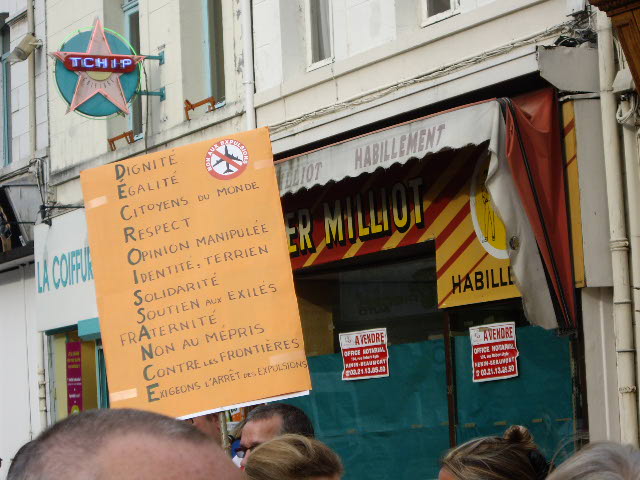 TCHIP
NON AUX EXPULSIONS
DIGNITÉ
ÉGALITÉ
CITOYENS DU MONDE
RESPECT
OPINION MANIPULÉE
IDENTITÉ : TERRIEN
SOLIDARITÉ
SOUTIEN AUX EXILÉS
FRATERNITÉ
NON AU MÉPRIS
CONTRE LES FRONTIÈRES
EXIGEONS L'ARRÊT DES EXPULSIONS
LA COIFFUR
HABILLEMENT
ER MILLIOT
HABILLE
A VENDRE
OFFICE NOTARIAL
HENIN-BEAUMONT
03.21.13.85.50
A VENDRE
OFFICE NOTARIAL
HENIN-BEAUMONT
03.21.13.85.50